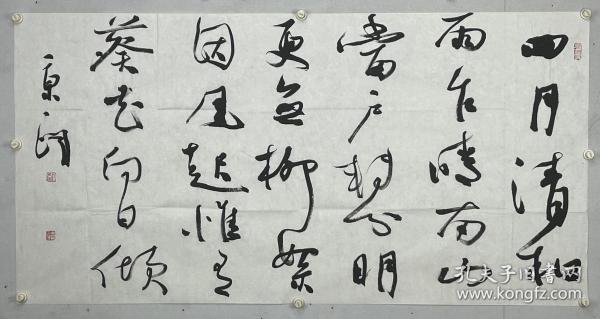 四月清和
雨乍晴南山
當户轉分明
更無柳絮
因風起惟有
葵花向日傾
孔夫子旧书网
www.kongfz.com